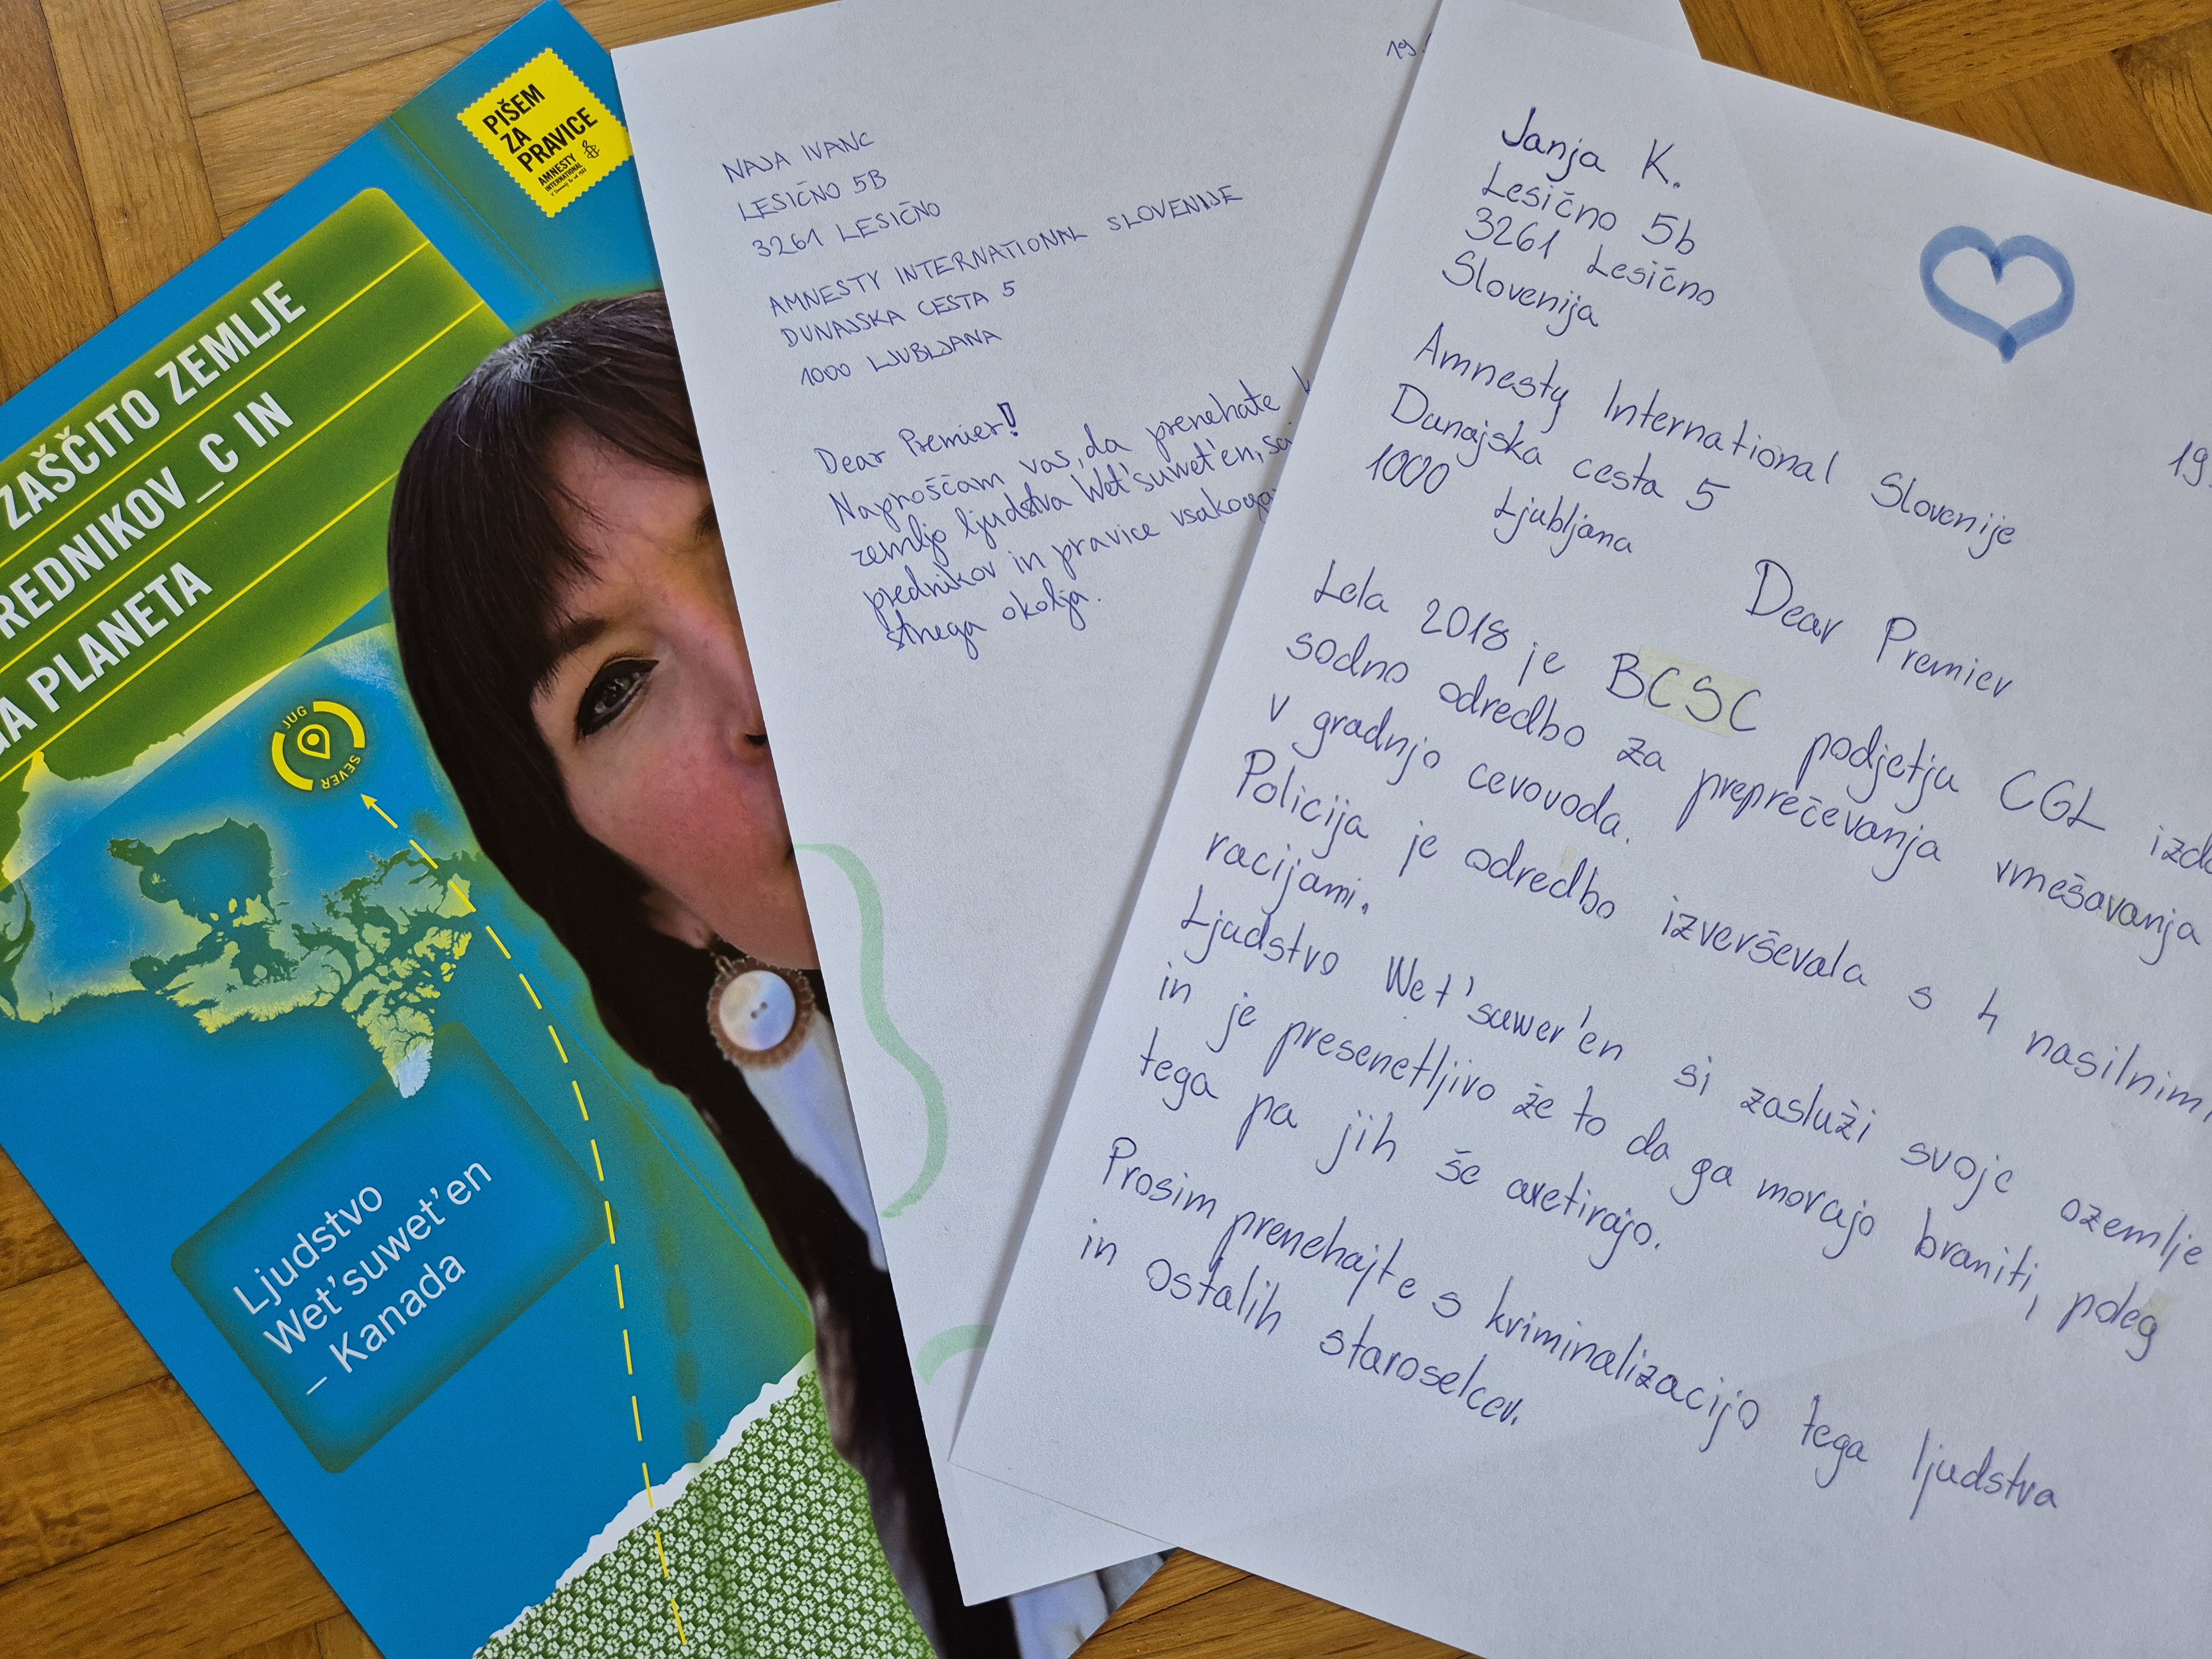 PIŠEM
ZA
PRAVICE
AMNESTY
INTERNATIONAL
ZAŠČITO ZEMLJE
REDNIKOV_C IN
GA PLANETA
JUG
SEVER
Ljudstvo
Wet'suwet'en
– Kanada
19.
NAJA IVANC
LESIČNO 5B
3261 LESIČNO
AMNESTY INTERNATIONAL SLOVENIJE
DUNAJSKA CESTA 5
1000 LJUBLJANA
Dear Premier!
Naprošćam vas, da prenehate
zemljo ljudstva Wet'suwet'en, saj
prednikov in pravice vsakoga
strega okolja.
Janja K.
Lesično 5b
3261 Lesično
Slovenija
19.
Amnesty International Slovenije
Dunajska cesta 5
1000 Ljubljana
Dear Premier
Lela 2018 je BCSC podjetju CGL izda
sodno odredbo za preprečevanja vmešavanja
v gradnjo cevovoda.
Policija je odredbo izverševala s 4 nasilnimi
racijami.
Ljudstvo Wet'suwer'en si zasluži svoje ozemlje
in je presenetljivo že to da ga morajo braniti, poleg
tega pa jih še aretirajo.
Prosim prenehajte s kriminalizacijo tega ljudstva
in ostalih staroselcev.